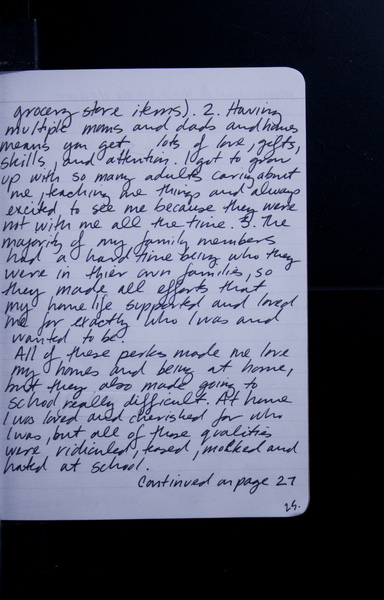 grocery store items). 2. Having
multiple moms and dads and homes
means you get lots of love, gifts,
skills, and attention. I got to grow
up with so many adults caring about
me, teaching me things and always
excited to see me because they were
not with me all the time. 3. The
majority of my family members
had a hard time being who they
were in thier own families, so
they made all efforts that
my home life supported and loved
me for exactly who I was and
wanted to be.
All of these perks made me love
my homes and being at home,
but they also made going to
school really difficult. At home
I was loved and cherished for who
I was, but all of those qualities
were ridiculed, teased, mokked and
hated at school.
Continued on page 27
25.